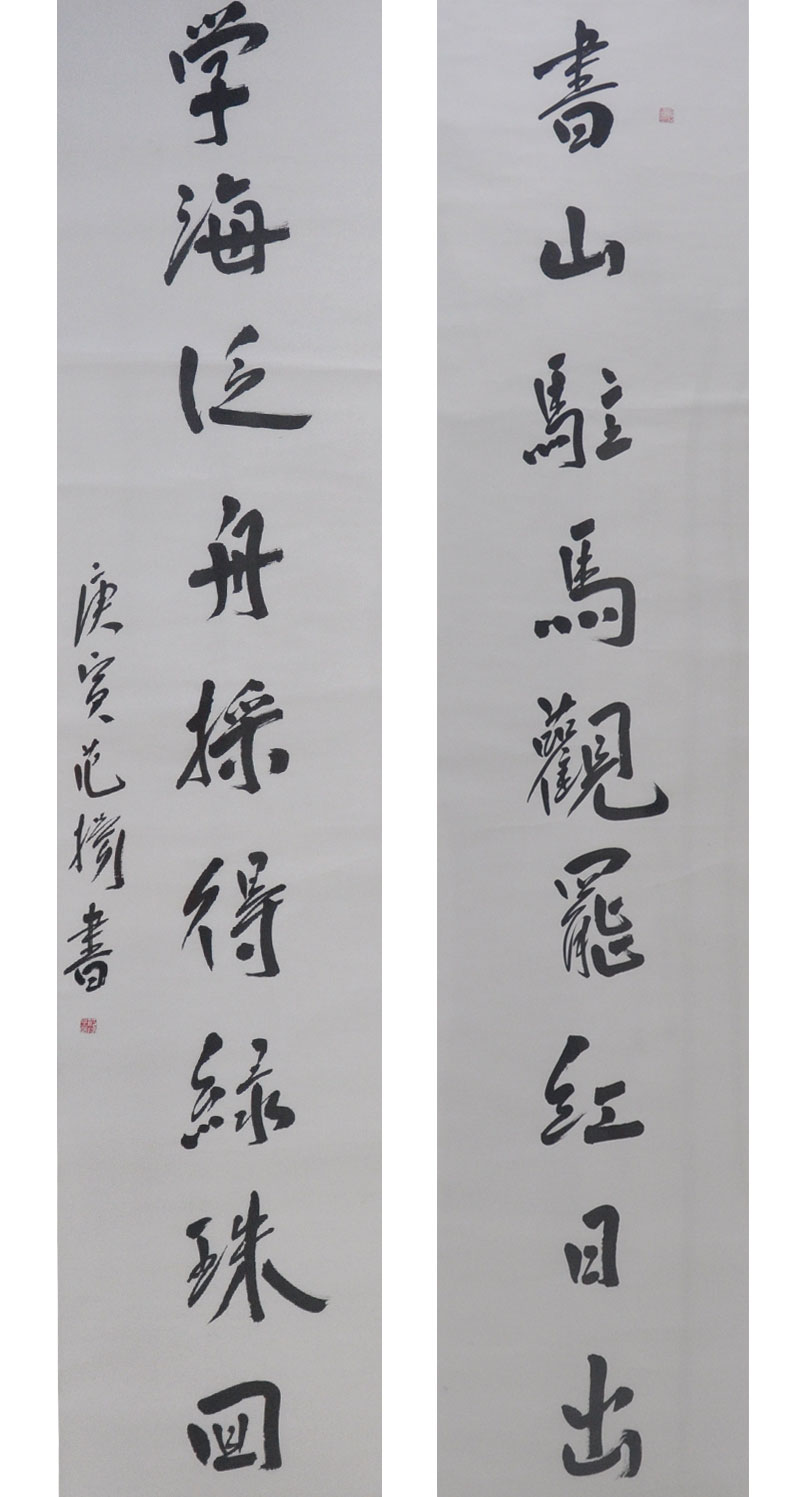 書山駐馬觀罷紅日出
学海泛舟採得緑珠回
庚寅范撝書